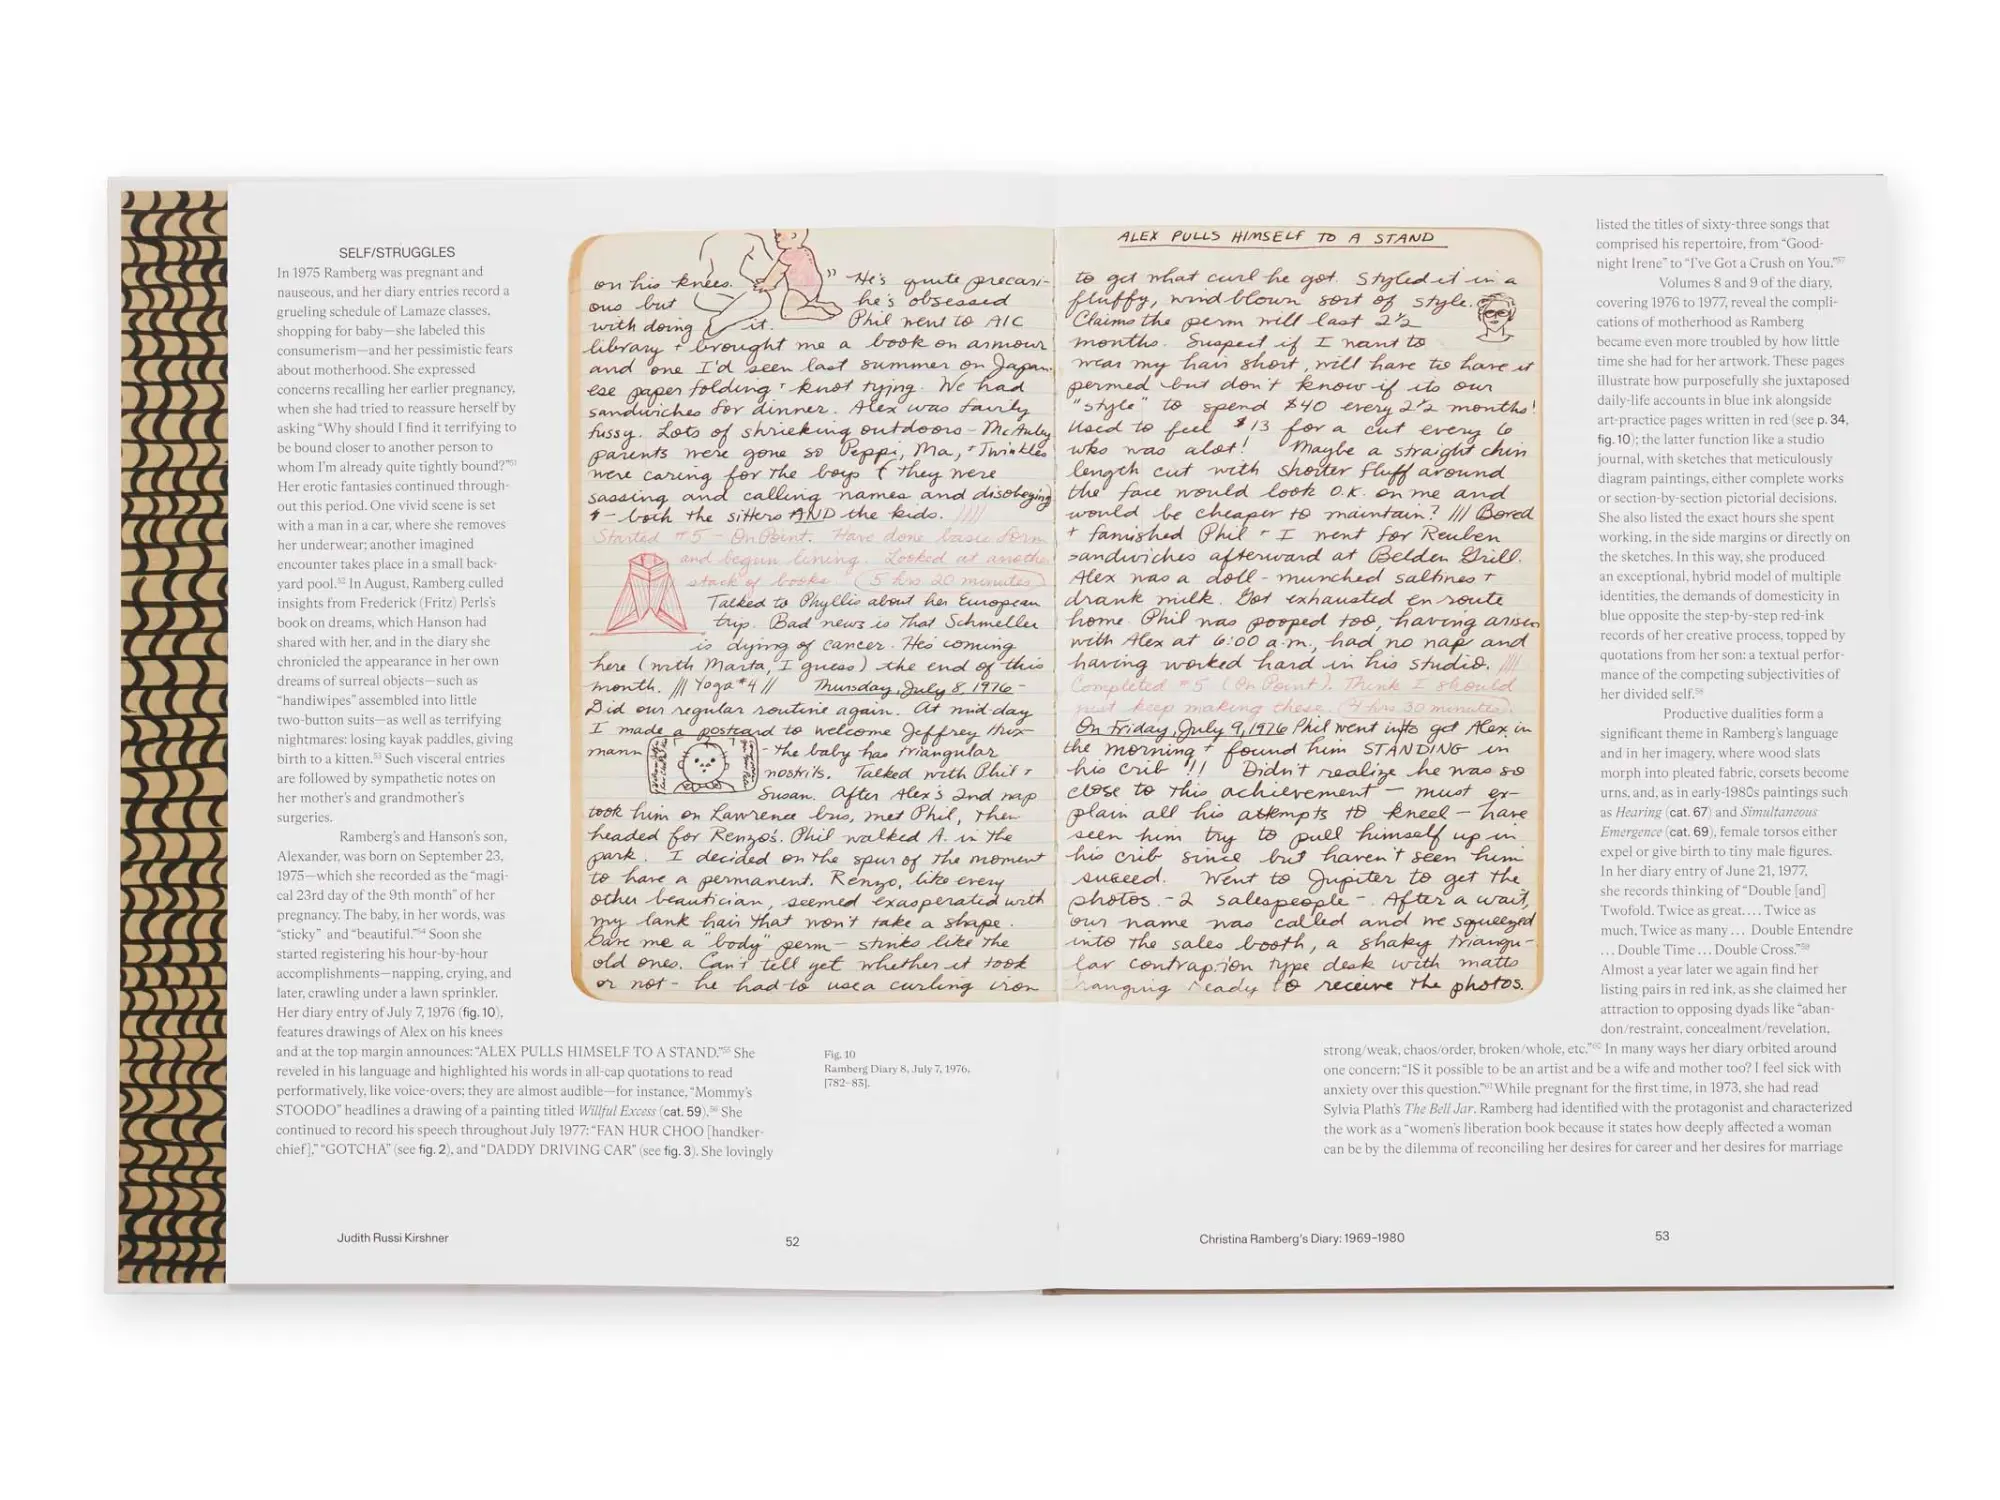 SELF/STRUGGLES
In 1975 Ramberg was pregnant and
nauseous, and her diary entries record a
grueling schedule of Lamaze classes,
shopping for baby—she labeled this
consumerism—and her pessimistic fears
about motherhood. She expressed
concerns recalling her earlier pregnancy,
when she had tried to reassure herself by
asking “Why should I find it terrifying to
be bound closer to another person to
whom I’m already quite tightly bound?”⁵¹
Her erotic fantasies continued through-
out this period. One vivid scene is set
with a man in a car, where she removes
her underwear; another imagined
encounter takes place in a small back-
yard pool.⁵² In August, Ramberg culled
insights from Frederick (Fritz) Perls’s
book on dreams, which Hanson had
shared with her, and in the diary she
chronicled the appearance in her own
dreams of surreal objects—such as
“handiwipes” assembled into little
two-button suits—as well as terrifying
nightmares: losing kayak paddles, giving
birth to a kitten.⁵³ Such visceral entries
are followed by sympathetic notes on
her mother’s and grandmother’s
surgeries.
Ramberg’s and Hanson’s son,
Alexander, was born on September 23,
1975—which she recorded as the “magi-
cal 23rd day of the 9th month” of her
pregnancy. The baby, in her words, was
“sticky” and “beautiful.”⁵⁴ Soon she
started registering his hour-by-hour
accomplishments—napping, crying, and
later, crawling under a lawn sprinkler.
Her diary entry of July 7, 1976 (fig. 10),
features drawings of Alex on his knees
and at the top margin announces: “ALEX PULLS HIMSELF TO A STAND.”⁵⁵ She
reveled in his language and highlighted his words in all-cap quotations to read
performatively, like voice-overs; they are almost audible—for instance, “Mommy’s
STOODO” headlines a drawing of a painting titled Willful Excess (cat. 59).⁵⁶ She
continued to record his speech throughout July 1977: “FAN HUR CHOO [handker-
chief],” “GOTCHA” (see fig. 2), and “DADDY DRIVING CAR” (see fig. 3). She lovingly
on his knees. He's quite precari-
ous but he's obsessed
with doing it. Phil went to AIC
library + brought me a book on armour
and one I'd seen last summer on Japan-
ese paper folding + knot tying. We had
sandwiches for dinner. Alex was fairly
fussy. Lots of shrieking outdoors - McAnley
parents were gone so Peppi, Ma, + Twinkles
were caring for the boys & they were
sassing and calling names and disobeying
- both the sitters AND the kids. ////
Started #5 - On Point. Have done basic form
and begun lining. Looked at another
stack of books. (5 hrs 20 minutes)
Talked to Phyllis about her European
trip. Bad news is that Schmeller
is dying of cancer. He's coming
here (with Marta, I guess) the end of this
month. /// Yoga #4 // Thursday, July 8, 1976 -
Did our regular routine again. At mid-day
I made a postcard to welcome Jeffrey Hux-
mann - the baby has triangular
nostrils. Talked with Phil +
Susan. After Alex's 2nd nap
took him on Lawrence bus, met Phil, then
headed for Renzo's. Phil walked A. in the
park. I decided on the spur of the moment
to have a permanent. Renzo, like every
other beautician, seemed exasperated with
my lank hair that won't take a shape.
Gave me a "body" perm - stinks like the
old ones. Can't tell yet whether it took
or not - he had to use a curling iron
Fig. 10
Ramberg Diary 8, July 7, 1976,
[782–83].
Judith Russi Kirshner
52
ALEX PULLS HIMSELF TO A STAND
to get what curl he got. Styled it in a
fluffy, windblown sort of style.
Claims the perm will last 2 1/2
months. Suspect if I want to
wear my hair short, will have to have it
permed but don't know if its our
"style" to spend $40 every 2 1/2 months!
Used to feel $13 for a cut every 6
wks was alot! Maybe a straight chin
length cut with shorter fluff around
the face would look O.K. on me and
would be cheaper to maintain? /// Bored
+ famished Phil + I went for Reuben
sandwiches afterward at Belden Grill.
Alex was a doll - munched saltines +
drank milk. Got exhausted en route
home. Phil was pooped too, having arisen
with Alex at 6:00 a.m., had no nap and
having worked hard in his studio. ////
Completed #5 (On Point). Think I should
just keep making these. (4 hrs 30 minutes).
On Friday, July 9, 1976 Phil went into get Alex in
the morning + found him STANDING in
his crib!! Didn't realize he was so
close to this achievement - must ex-
plain all his attempts to kneel - have
seen him try to pull himself up in
his crib since but haven't seen him
suceed. Went to Jupiter to get the
photos. - 2 salespeople -. After a wait,
our name was called and we squeezed
into the sales booth, a shaky triangu-
lar contraption type desk with matts
hanging ready to receive the photos.
listed the titles of sixty-three songs that
comprised his repertoire, from “Good-
night Irene” to “I’ve Got a Crush on You.”⁵⁷
Volumes 8 and 9 of the diary,
covering 1976 to 1977, reveal the compli-
cations of motherhood as Ramberg
became even more troubled by how little
time she had for her artwork. These pages
illustrate how purposefully she juxtaposed
daily-life accounts in blue ink alongside
art-practice pages written in red (see p. 34,
fig. 10); the latter function like a studio
journal, with sketches that meticulously
diagram paintings, either complete works
or section-by-section pictorial decisions.
She also listed the exact hours she spent
working, in the side margins or directly on
the sketches. In this way, she produced
an exceptional, hybrid model of multiple
identities, the demands of domesticity in
blue opposite the step-by-step red-ink
records of her creative process, topped by
quotations from her son: a textual perfor-
mance of the competing subjectivities of
her divided self.⁵⁸
Productive dualities form a
significant theme in Ramberg’s language
and in her imagery, where wood slats
morph into pleated fabric, corsets become
urns, and, as in early-1980s paintings such
as Hearing (cat. 67) and Simultaneous
Emergence (cat. 69), female torsos either
expel or give birth to tiny male figures.
In her diary entry of June 21, 1977,
she records thinking of “Double [and]
Twofold. Twice as great. . . . Twice as
much, Twice as many . . . Double Entendre
. . . Double Time . . . Double Cross.”⁵⁹
Almost a year later we again find her
listing pairs in red ink, as she claimed her
attraction to opposing dyads like “aban-
don/restraint, concealment/revelation,
strong/weak, chaos/order, broken/whole, etc.”⁶⁰ In many ways her diary orbited around
one concern: “IS it possible to be an artist and be a wife and mother too? I feel sick with
anxiety over this question.”⁶¹ While pregnant for the first time, in 1973, she had read
Sylvia Plath’s The Bell Jar. Ramberg had identified with the protagonist and characterized
the work as a “women’s liberation book because it states how deeply affected a woman
can be by the dilemma of reconciling her desires for career and her desires for marriage
Christina Ramberg’s Diary: 1969–1980
53